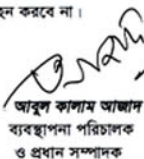 হন করবে না।
আবুল কালাম আজাদ
ব্যবস্থাপনা পরিচালক
ও প্রধান সম্পাদক